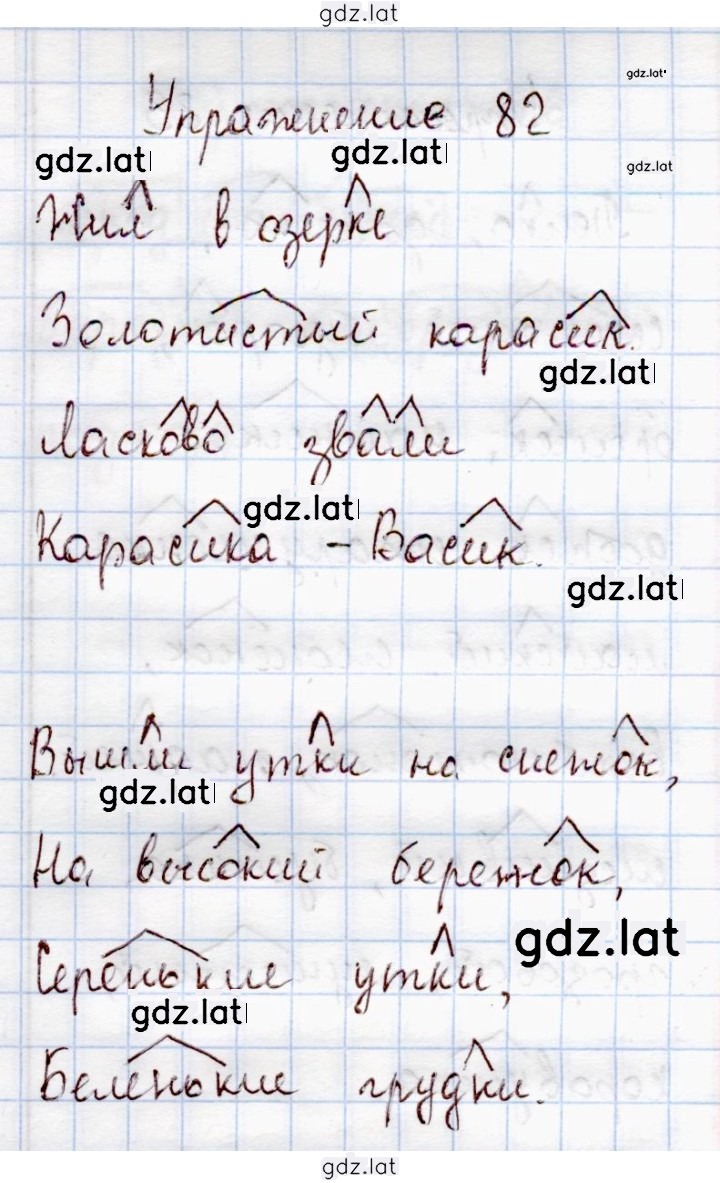 gdz.lat
gdz.lat
Упражнение 82
gdz.lat gdz.lat gdz.lat
Жил в озерке
Золотистый карасик.
gdz.lat
Ласково звали
gdz.lat
Карасика - Васик.
gdz.lat
Вышли утки на снежок,
gdz.lat
На высокий бережок,
gdz.lat
Серенькие утки,
gdz.lat
Беленькие грудки.
gdz.lat